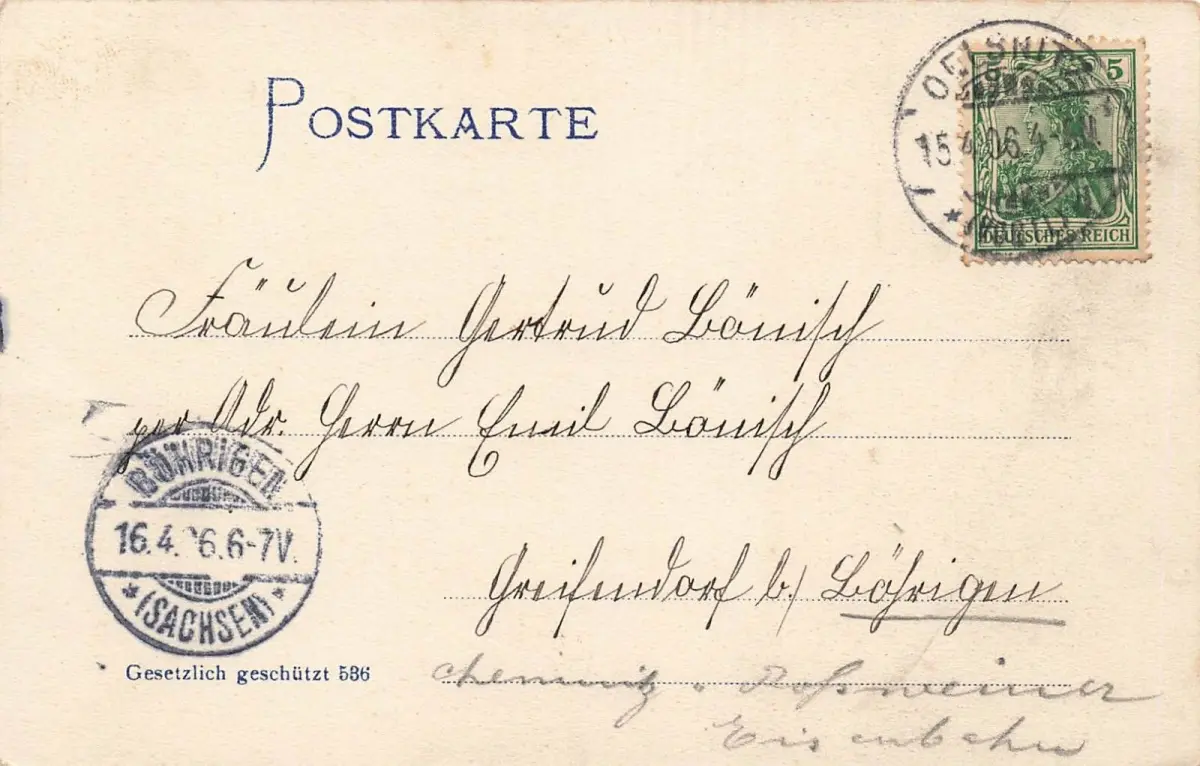 POSTKARTE
OELSNITZ
15.4.06.4-
5
DEUTSCHES REICH
Fräulein Gertrud Bönisch
per Adr. Herrn Emil Bönisch
BÖHRIGEN
16.4.06.6-7V.
* (SACHSEN) *
Greifendorf b/ Böhrigen
Gesetzlich geschützt 536
Chemnitz - Rossweiner
Eisenbahn